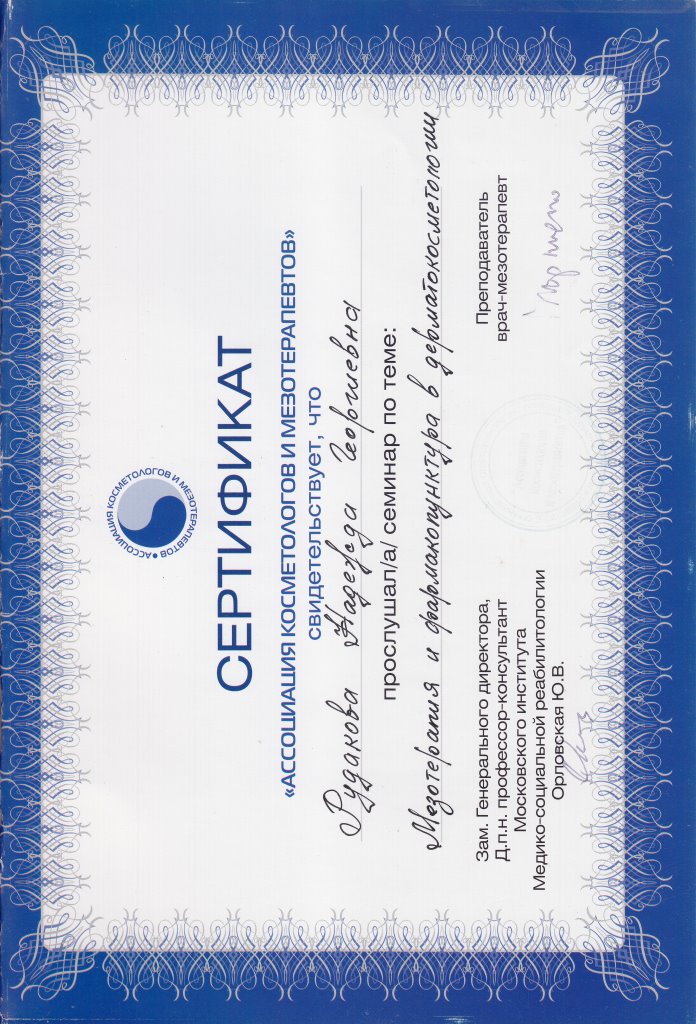 АССОЦИАЦИЯ КОСМЕТОЛОГОВ И МЕЗОТЕРАПЕВТОВ
СЕРТИФИКАТ
«АССОЦИАЦИЯ КОСМЕТОЛОГОВ И МЕЗОТЕРАПЕВТОВ»
свидетельствует, что
Рудакова Надежда Георгиевна
прослушал/а/ семинар по теме:
Мезотерапия и фармакопунктура в дерматокосметологии
Зам. Генерального директора,
Д.п.н. профессор-консультант
Московского института
Медико-социальной реабилитологии
Орловская Ю.В.
Преподаватель
врач-мезотерапевт